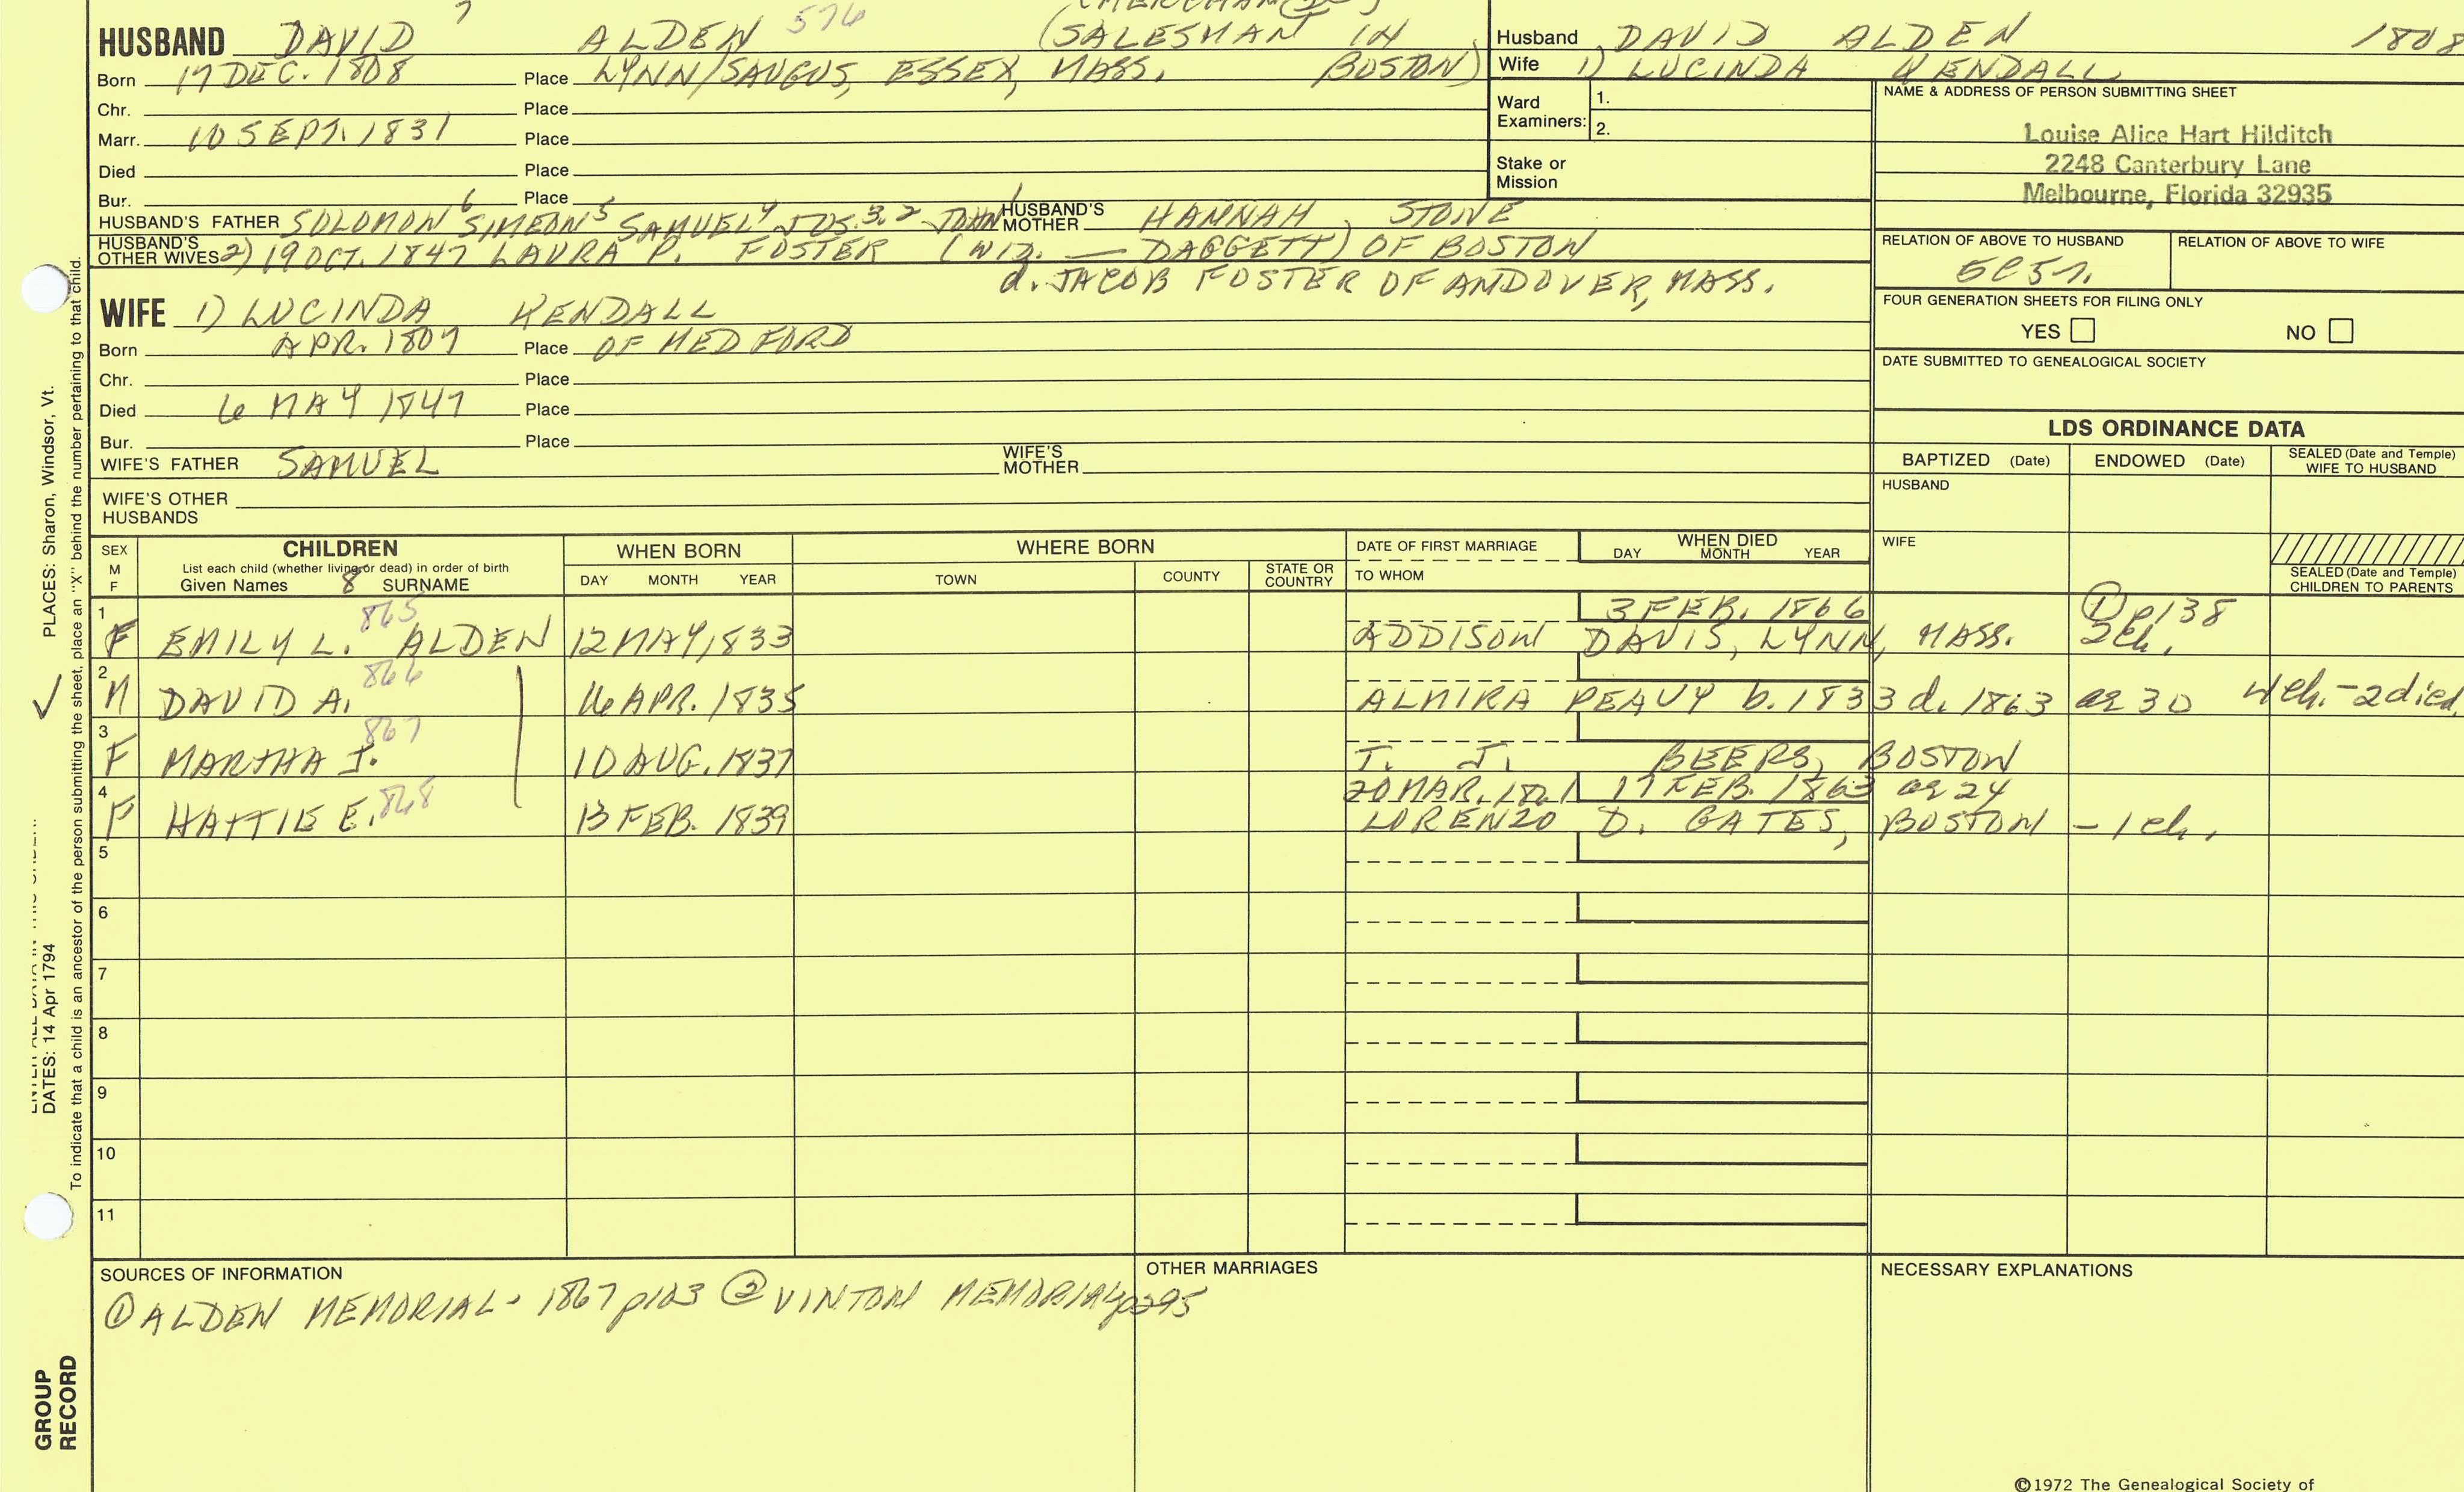 7
HUSBAND DAVID ALDEN 576 (SALESMAN IN BOSTON)
Born 17 DEC. 1808 Place LYNN/SAUGUS, ESSEX, MASS.
Chr. Place
Marr. 10 SEPT. 1831 Place
Died Place
Bur. Place
HUSBAND'S FATHER SOLOMON 6 SIMEON 5 SAMUEL 4 JOS. 3, 2 JOHN 1 HUSBAND'S MOTHER HANNAH STONE
HUSBAND'S OTHER WIVES 2) 19 OCT. 1847 LAURA P. FOSTER (WID. — DAGGETT) OF BOSTON
d. JACOB FOSTER OF ANDOVER, MASS.
WIFE 1) LUCINDA KENDALL
Born APR. 1809 Place OF MEDFORD
Chr. Place
Died 6 MAY 1847 Place
Bur. Place
WIFE'S FATHER SAMUEL WIFE'S MOTHER
WIFE'S OTHER HUSBANDS
Husband DAVID ALDEN 1808
Wife 1) LUCINDA KENDALL
Ward Examiners: 1.
2.
Stake or Mission
NAME & ADDRESS OF PERSON SUBMITTING SHEET
Louise Alice Hart Hilditch
2248 Canterbury Lane
Melbourne, Florida 32935
RELATION OF ABOVE TO HUSBAND RELATION OF ABOVE TO WIFE
FOUR GENERATION SHEETS FOR FILING ONLY
YES NO
DATE SUBMITTED TO GENEALOGICAL SOCIETY
LDS ORDINANCE DATA
BAPTIZED (Date) ENDOWED (Date) SEALED (Date and Temple) WIFE TO HUSBAND
HUSBAND
WIFE
SEALED (Date and Temple) CHILDREN TO PARENTS
SEX M F CHILDREN WHEN BORN WHERE BORN DATE OF FIRST MARRIAGE WHEN DIED
List each child (whether living or dead) in order of birth DAY MONTH YEAR TOWN COUNTY STATE OR COUNTRY TO WHOM DAY MONTH YEAR
Given Names 8 SURNAME
1 865 3 FEB. 1866 ① p138
F EMILY L. ALDEN 12 MAY 1833 ADDISON DAVIS, LYNN, MASS. 2ch.
2 866
M DAVID A. 16 APR. 1835 ALMIRA PEAVY b. 1833 d. 1863 ae 30 4 ch. - 2 died
3 867
F MARTHA J. 10 AUG. 1837 T. J. BEERS, BOSTON
4 868 20 MAR. 1861 17 FEB. 1863 ae 24
F HATTIE E. 13 FEB. 1839 LORENZO D. GATES, BOSTON - 1 ch.
5
6
7
8
9
10
11
SOURCES OF INFORMATION
① ALDEN MEMORIAL - 1867 p103 ② VINTON MEMORIAL p295
OTHER MARRIAGES
NECESSARY EXPLANATIONS
©1972 The Genealogical Society of
PLACES: Sharon, Windsor, Vt.
DATES: 14 Apr 1794
To indicate that a child is an ancestor of the person submitting the sheet, place an "X" behind the number pertaining to that child.
GROUP
RECORD